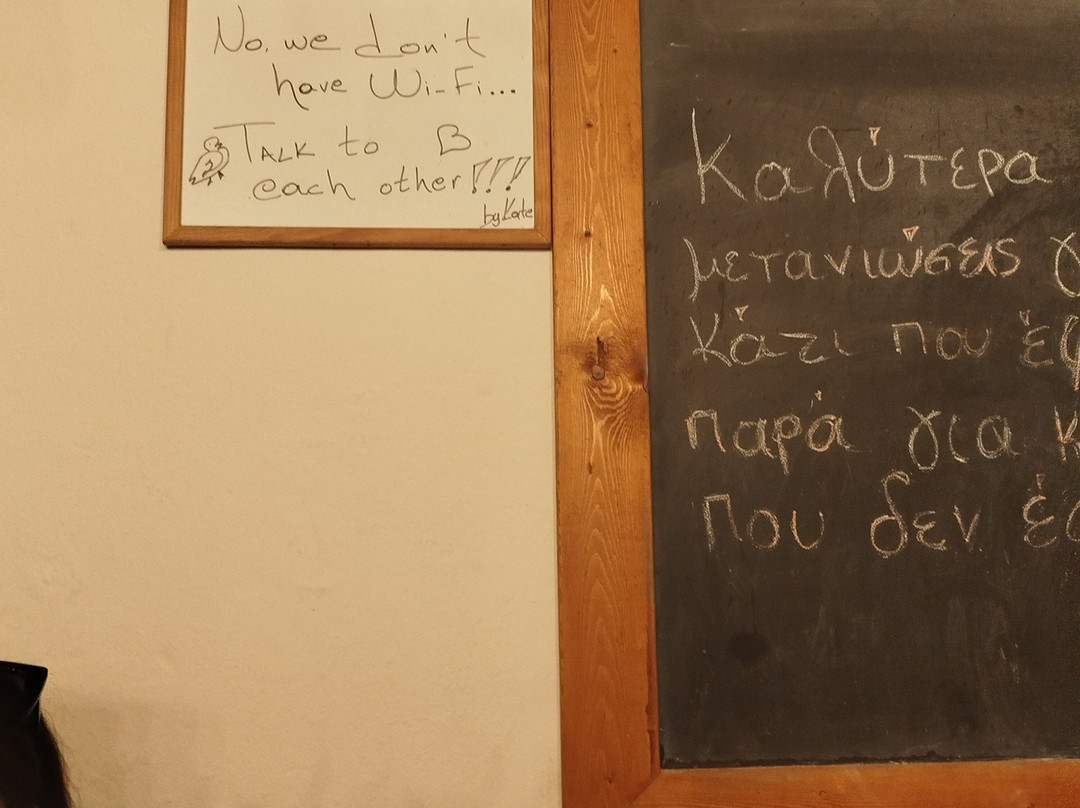 No, we don't
have Wi-Fi...
TALK to
each other!!!
by Kate
Καλύτερα
μετανιώσεις
κάτι που
παρά για
που δεν